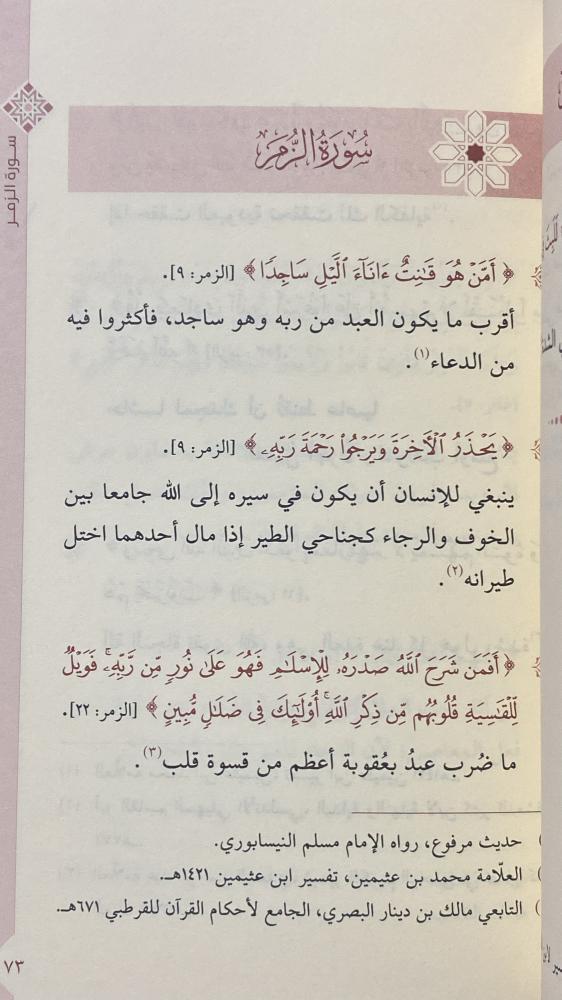 سورة الزمر
سُورَةُ الزُّمَر
﴿ أَمَّنْ هُوَ قَٰنِتٌ ءَانَآءَ ٱلَّيْلِ سَاجِدًا ﴾ [الزمر: ٩].
أقرب ما يكون العبد من ربه وهو ساجد، فأكثروا فيه
من الدعاء(١).
﴿ يَحْذَرُ ٱلْأَخِرَةَ وَيَرْجُوا۟ رَحْمَةَ رَبِّهِۦ ﴾ [الزمر: ٩].
ينبغي للإنسان أن يكون في سيره إلى الله جامعا بين
الخوف والرجاء كجناحي الطير إذا مال أحدهما اختل
طيرانه(٢).
﴿ أَفَمَن شَرَحَ ٱللَّهُ صَدْرَهُۥ لِلْإِسْلَٰمِ فَهُوَ عَلَىٰ نُورٍ مِّن رَّبِّهِۦ ۚ فَوَيْلٌ
لِّلْقَٰسِيَةِ قُلُوبُهُم مِّن ذِكْرِ ٱللَّهِ ۚ أُو۟لَٰٓئِكَ فِى ضَلَٰلٍ مُّبِينٍ ﴾ [الزمر: ٢٢].
ما ضُرب عبدُ بعُقوبة أعظم من قسوة قلب(٣).
) حديث مرفوع، رواه الإمام مسلم النيسابوري.
) العلّامة محمد بن عثيمين، تفسير ابن عثيمين ١٤٢١هـ.
) التابعي مالك بن دينار البصري، الجامع لأحكام القرآن للقرطبي ٦٧١هـ.
٧٣